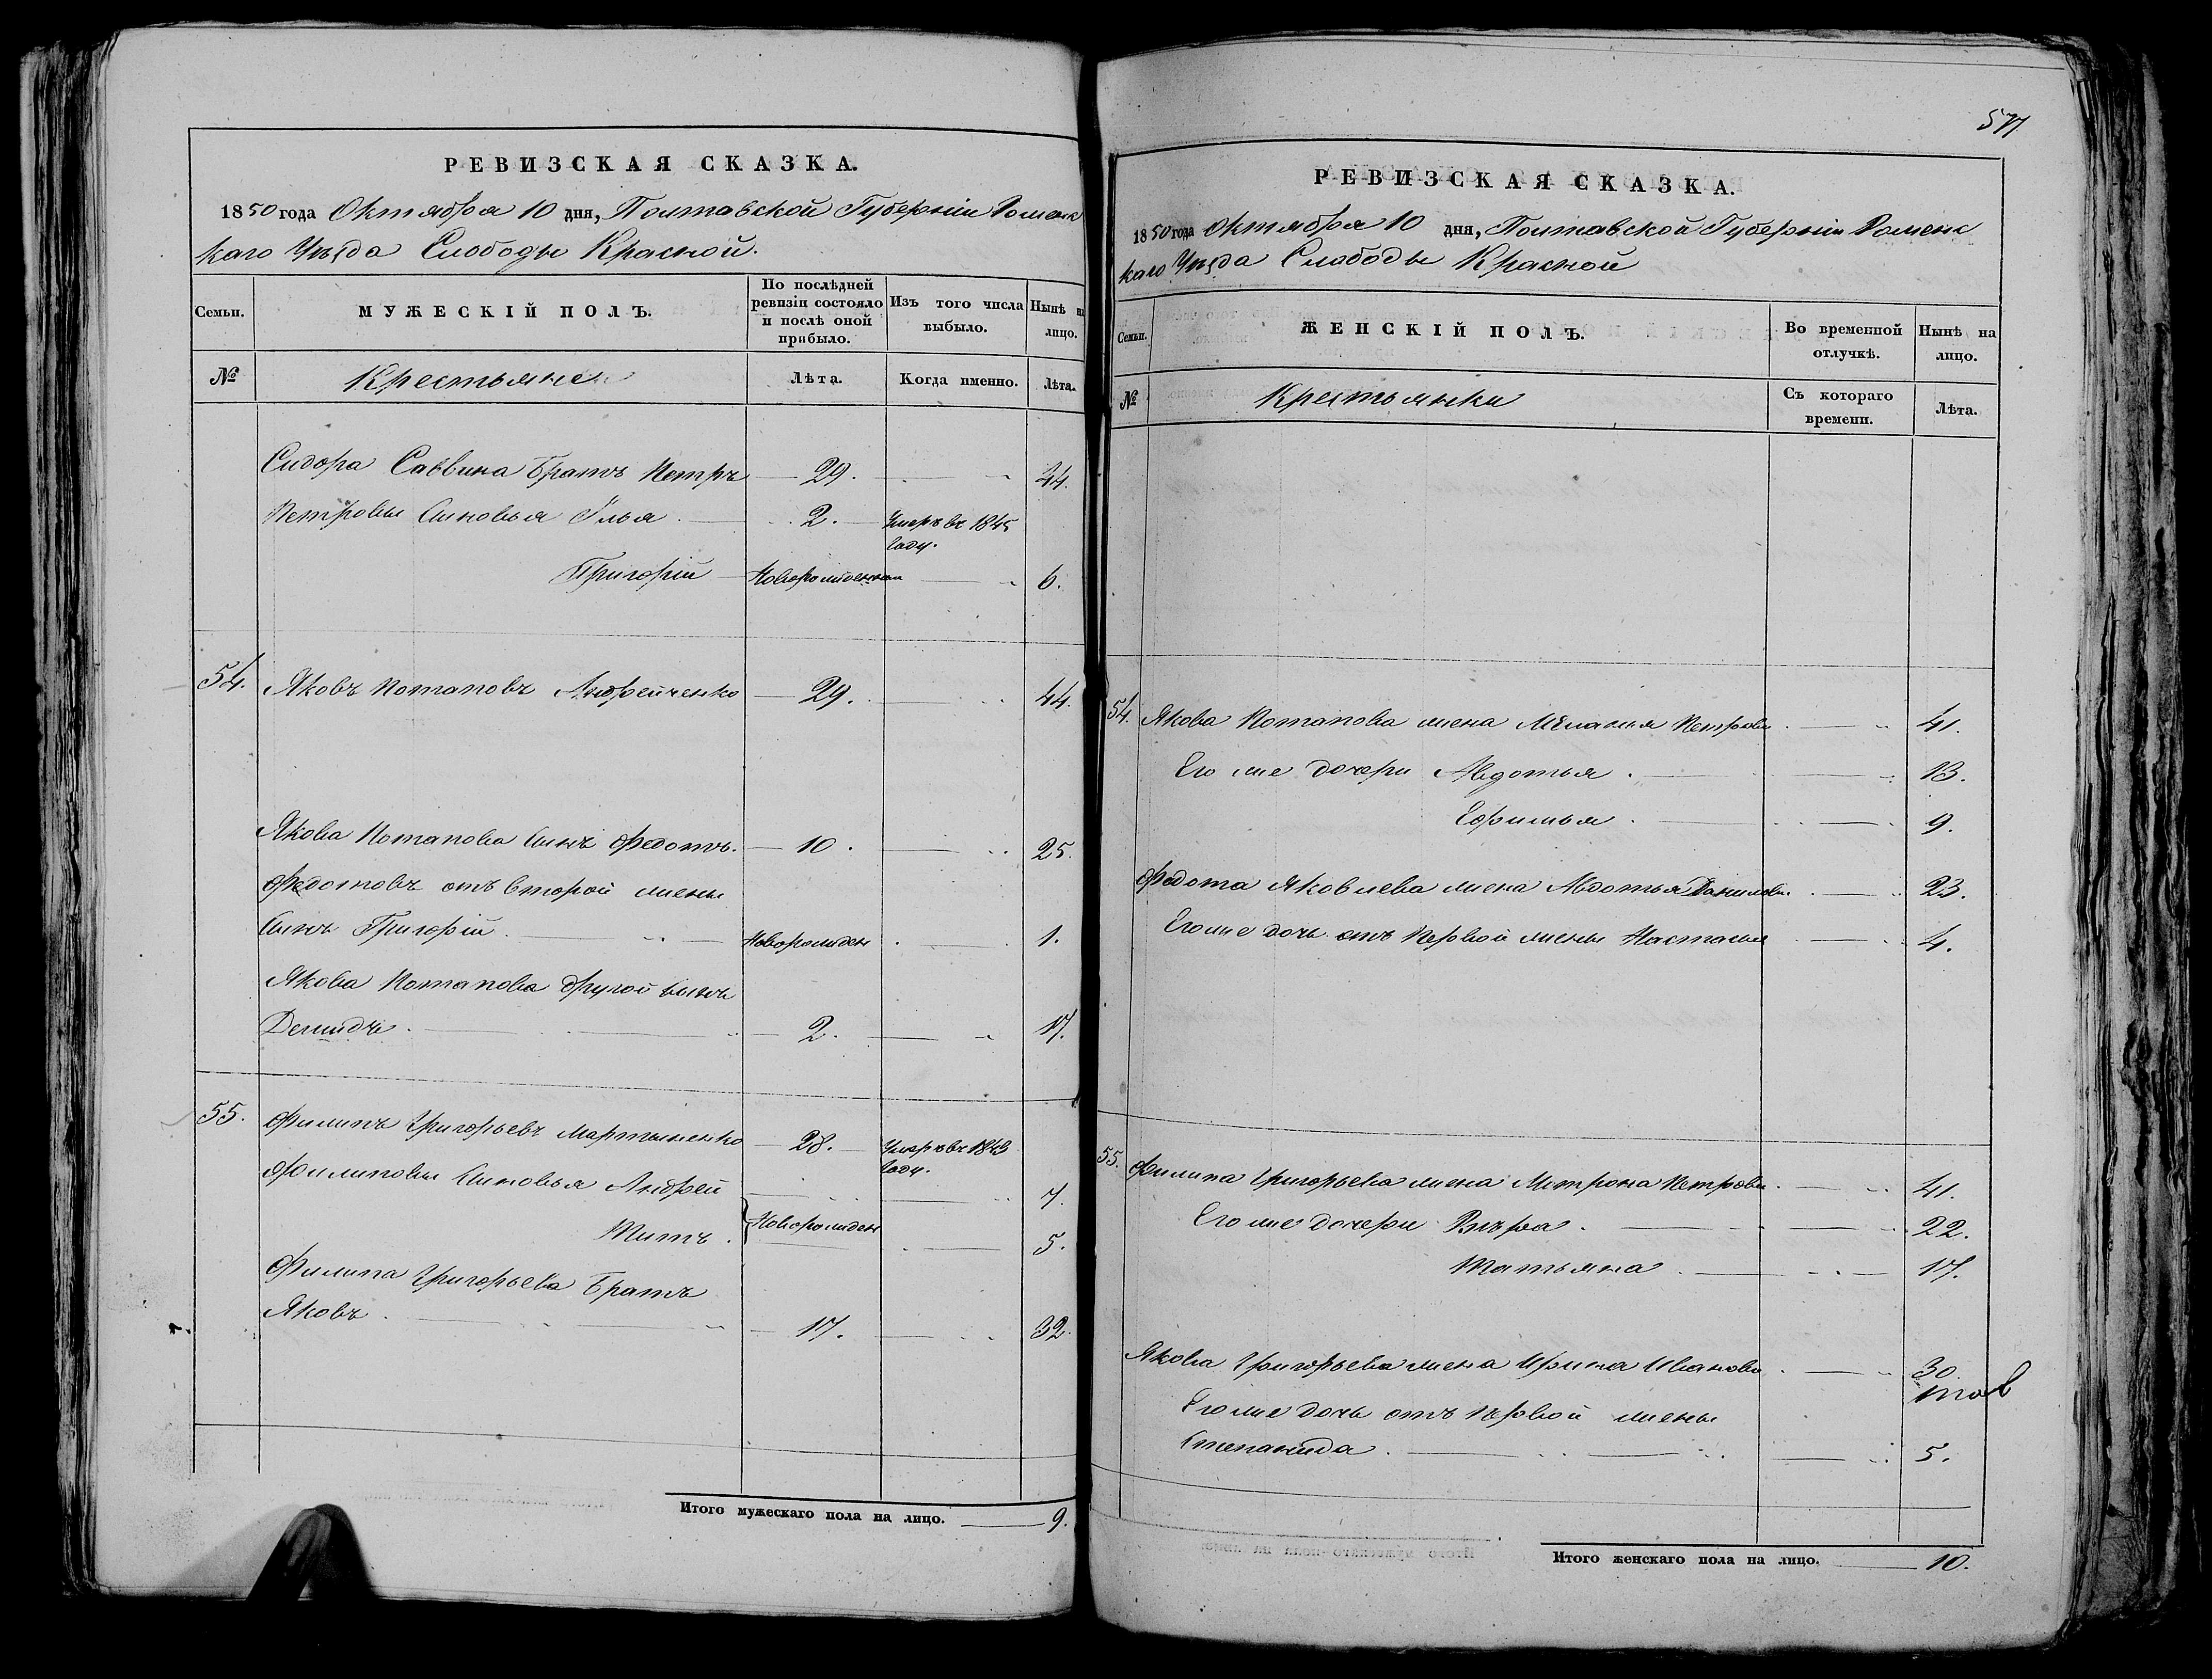 РЕВИЗСКАЯ СКАЗКА.
1850 года Октября 10 дня, Полтавской Губерніи Роменс
каго Уѣзда Слободы Красной.
Семьи.
МУЖЕСКІЙ ПОЛЪ.
По послѣдней ревизіи состояло и послѣ оной прибыло.
Изъ того числа выбыло.
Нынѣ на лицо.
№
Крестьяне
Лѣта.
Когда именно.
Лѣта.
Сидора Саввина Братъ Петръ — 29. 44.
Петровы Сыновья Илья — 2. Умеръ въ 1845 году.
Григорій Новорожденный 6.
54. Яковъ Потаповъ Андрейченко — 29. 44.
Якова Потапова Сынъ Федотъ. — 10. 25.
Федотовъ отъ второй жены
Сынъ Григорій Новорожден 1.
Якова Потапова другой сынъ
Демидъ. 2. 17.
55. Филипъ Григорьевъ Мартыненко — 28. Умеръ въ 1843 году.
Филиповы Сыновья Андрей 7.
Титъ. Новорожден 5.
Филипа Григорьева Братъ
Яковъ. 17. 32.
Итого мужескаго пола на лицо. 9.
577
РЕВИЗСКАЯ СКАЗКА.
1850 года Октября 10 дня, Полтавской Губерніи Роменс
каго Уѣзда Слободы Красной
Семьи.
ЖЕНСКІЙ ПОЛЪ.
Во временной отлучкѣ.
Нынѣ на лицо.
№
Крестьянки
Съ котораго времени.
Лѣта.
54. Якова Потапова жена Меланья Петрова 41.
Его же дочери Авдотья. 13.
Ефимья. 9.
Федота Яковлева жена Авдотья Данилова. 23.
Его же дочь отъ первой жены Настасья 4.
55. Филипа Григорьева жена Матрона Петрова. 41.
Его же дочери Вѣра. 22.
Татьяна. 17.
Якова Григорьева жена Ирина Иванова 30
Его же дочь отъ первой жены
Степанида. 5.
Итого женскаго пола на лицо. 10.